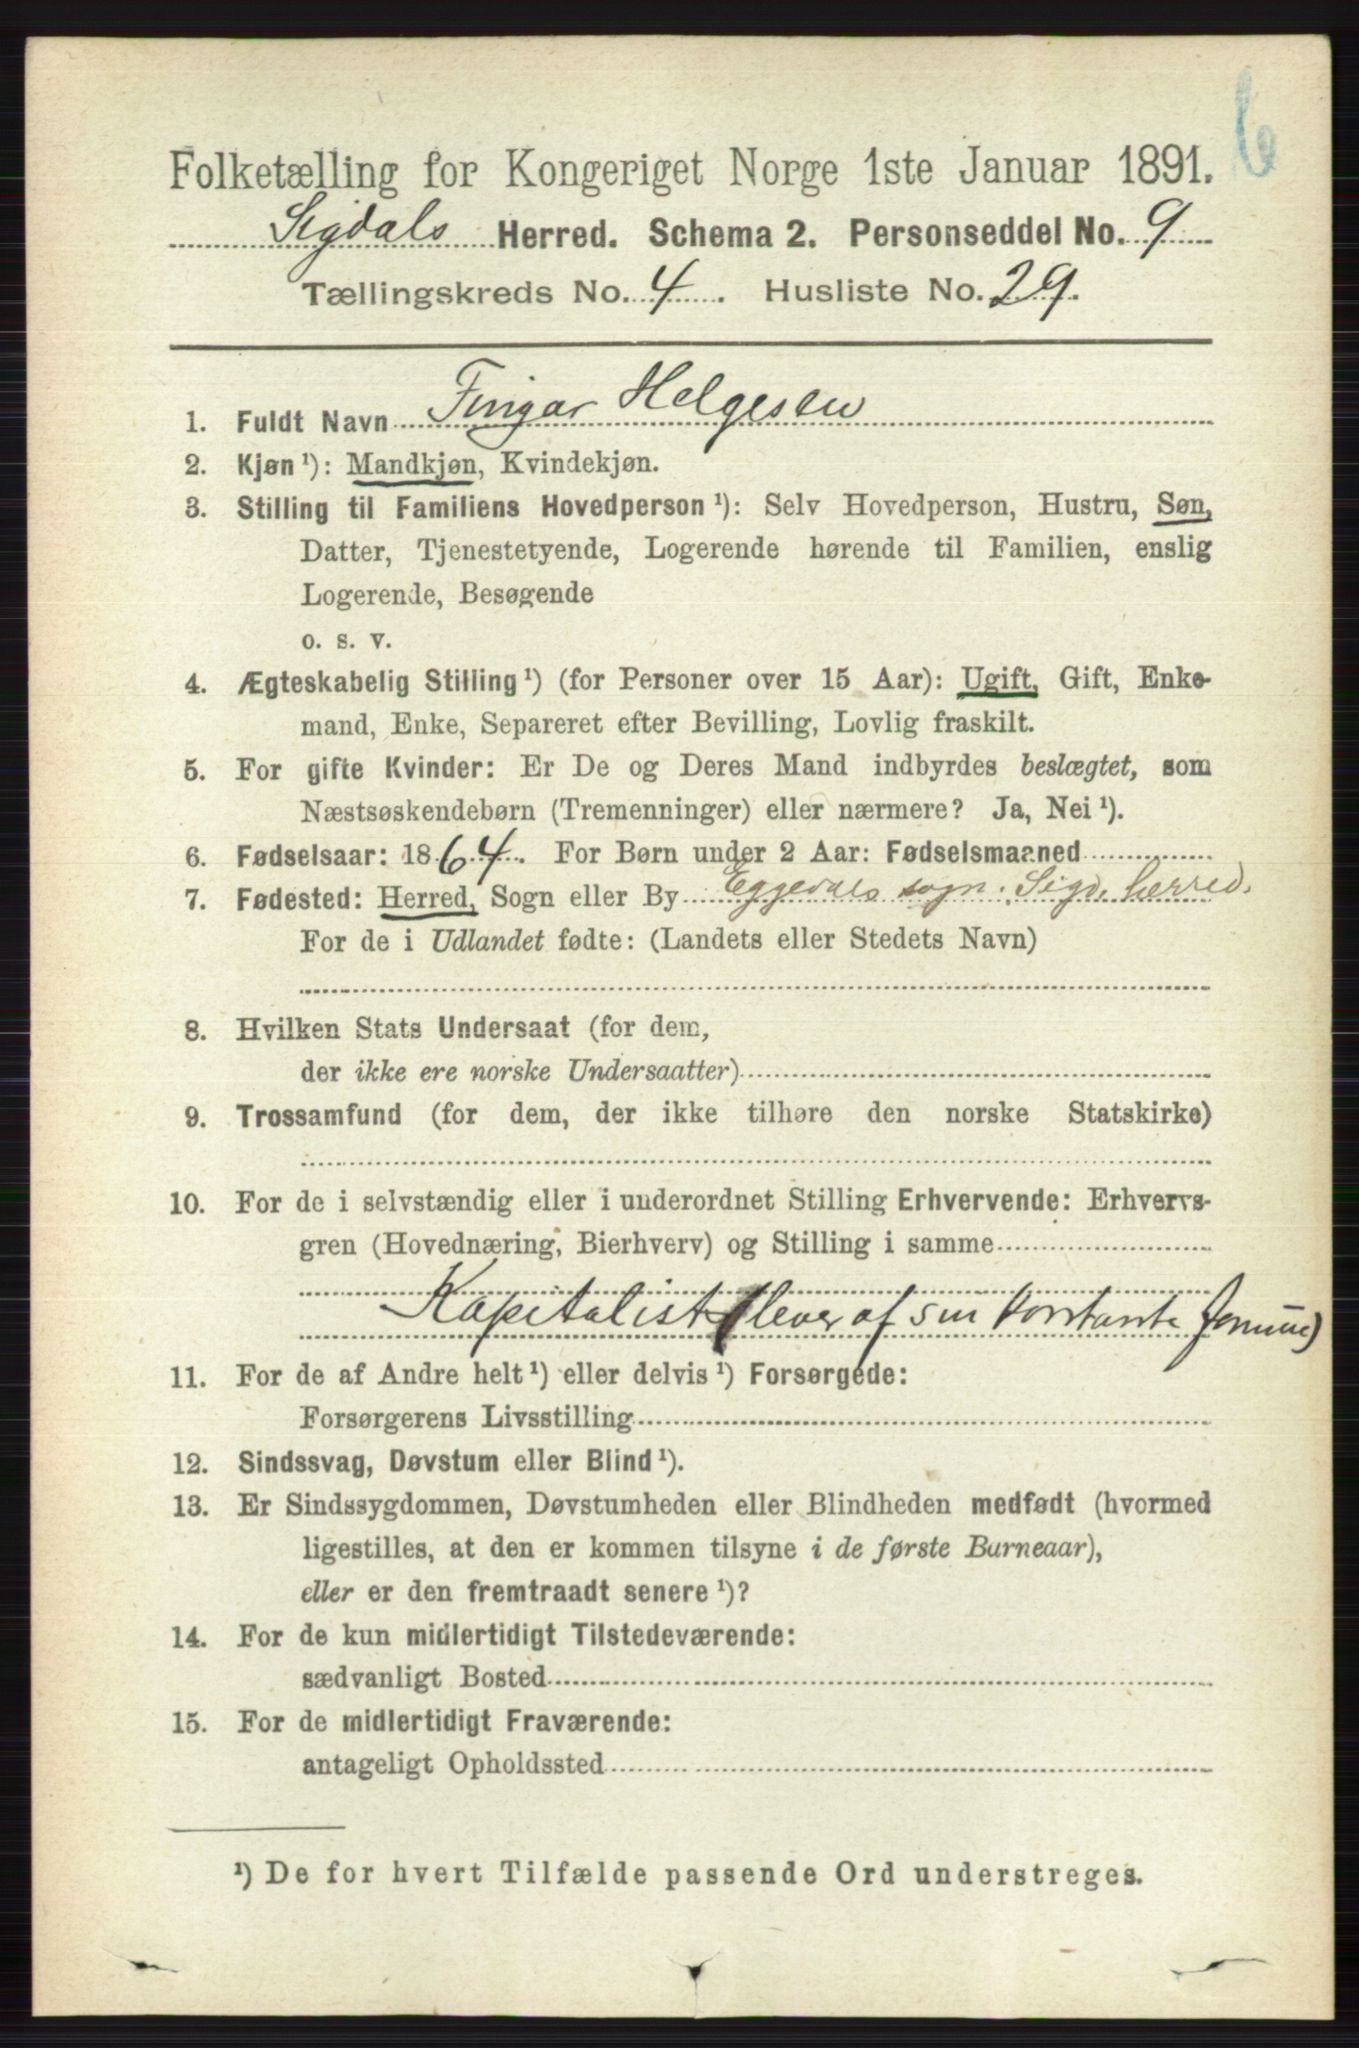 6
Folketælling for Kongeriget Norge 1ste Januar 1891.
Sigdals Herred. Schema 2. Personseddel No. 9
Tællingskreds No. 4. Husliste No. 29.
1. Fuldt Navn Fingar Helgesen
2. Kjøn ¹): Mandkjøn, Kvindekjøn.
3. Stilling til Familiens Hovedperson ¹): Selv Hovedperson, Hustru, Søn,
Datter, Tjenestetyende, Logerende hørende til Familien, enslig
Logerende, Besøgende
o. s. v.
4. Ægteskabelig Stilling ¹) (for Personer over 15 Aar): Ugift, Gift, Enke-
mand, Enke, Separeret efter Bevilling, Lovlig fraskilt.
5. For gifte Kvinder: Er De og Deres Mand indbyrdes beslægtet, som
Næstsøskendebørn (Tremenninger) eller nærmere? Ja, Nei ¹).
6. Fødselsaar: 1864. For Børn under 2 Aar: Fødselsmaaned
7. Fødested: Herred, Sogn eller By Eggedals sogn. Sigd. herred.
For de i Udlandet fødte: (Landets eller Stedets Navn)
8. Hvilken Stats Undersaat (for dem,
der ikke ere norske Undersaatter)
9. Trossamfund (for dem, der ikke tilhøre den norske Statskirke)
10. For de i selvstændig eller i underordnet Stilling Erhvervende: Erhvervs-
gren (Hovednæring, Bierhverv) og Stilling i samme
Kapitalist (lever af sin konstante
11. For de af Andre helt ¹) eller delvis ¹) Forsørgede:
Forsørgerens Livsstilling
12. Sindssvag, Døvstum eller Blind ¹).
13. Er Sindssygdommen, Døvstumheden eller Blindheden medfødt (hvormed
ligestilles, at den er kommen tilsyne i de første Barneaar),
eller er den fremtraadt senere ¹)?
14. For de kun midlertidigt Tilstedeværende:
sædvanligt Bosted
15. For de midlertidigt Fraværende:
antageligt Opholdssted
¹) De for hvert Tilfælde passende Ord understreges.